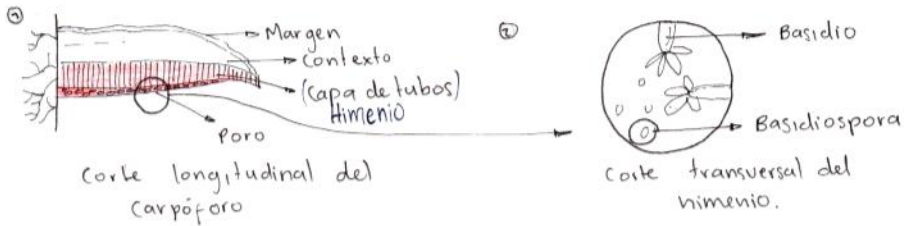 ①
Margen
Contexto
(capa de tubos)
Himenio
Poro
Corte longitudinal del
Carpóforo
②
Basidio
Basidiospora
Corte transversal del
himenio.